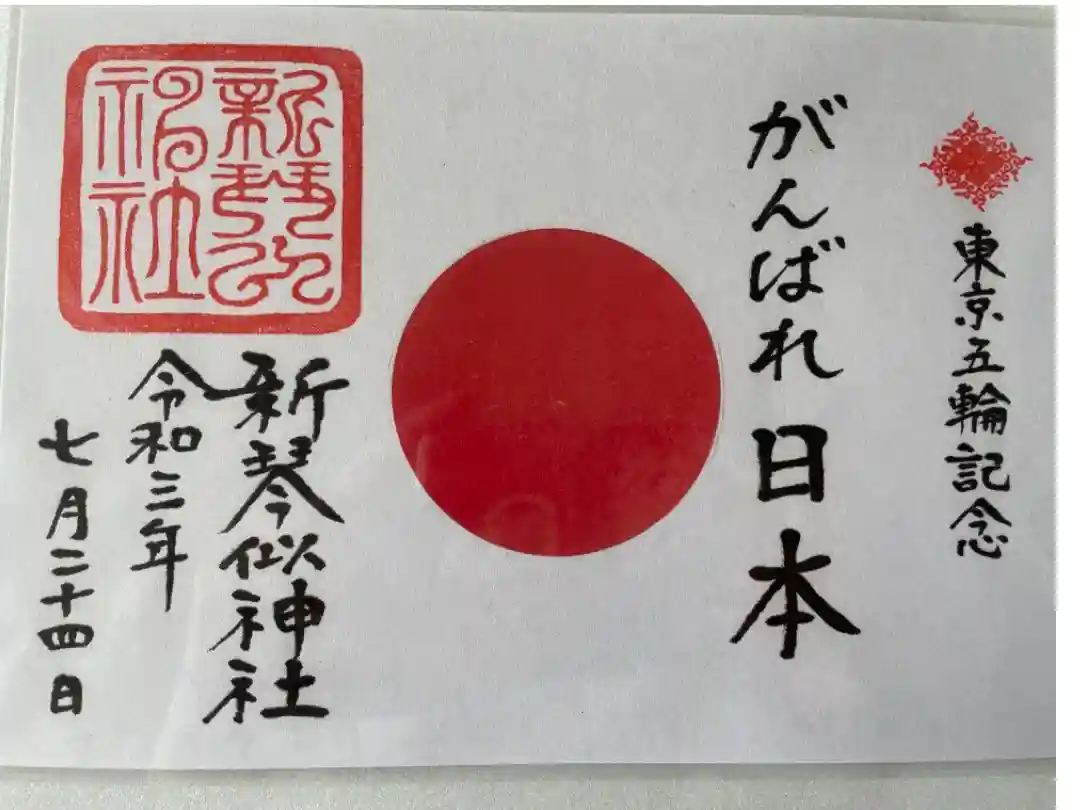 東京五輪記念
がんばれ日本
新琴似
神社
新琴似神社
令和三年
七月二十四日